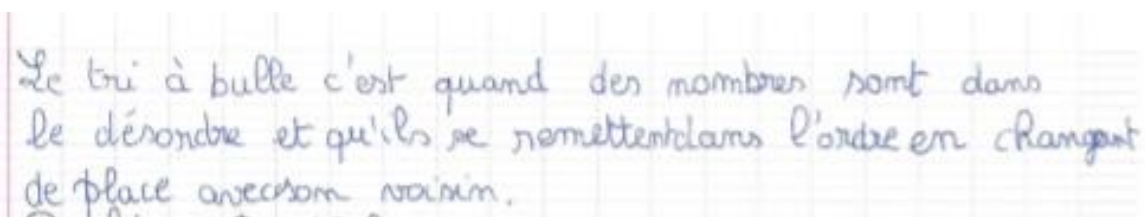 Le tri à bulle c'est quand des nombres sont dans
le désordre et qu'ils se remettent dans l'ordre en changant
de place avec son voisin.